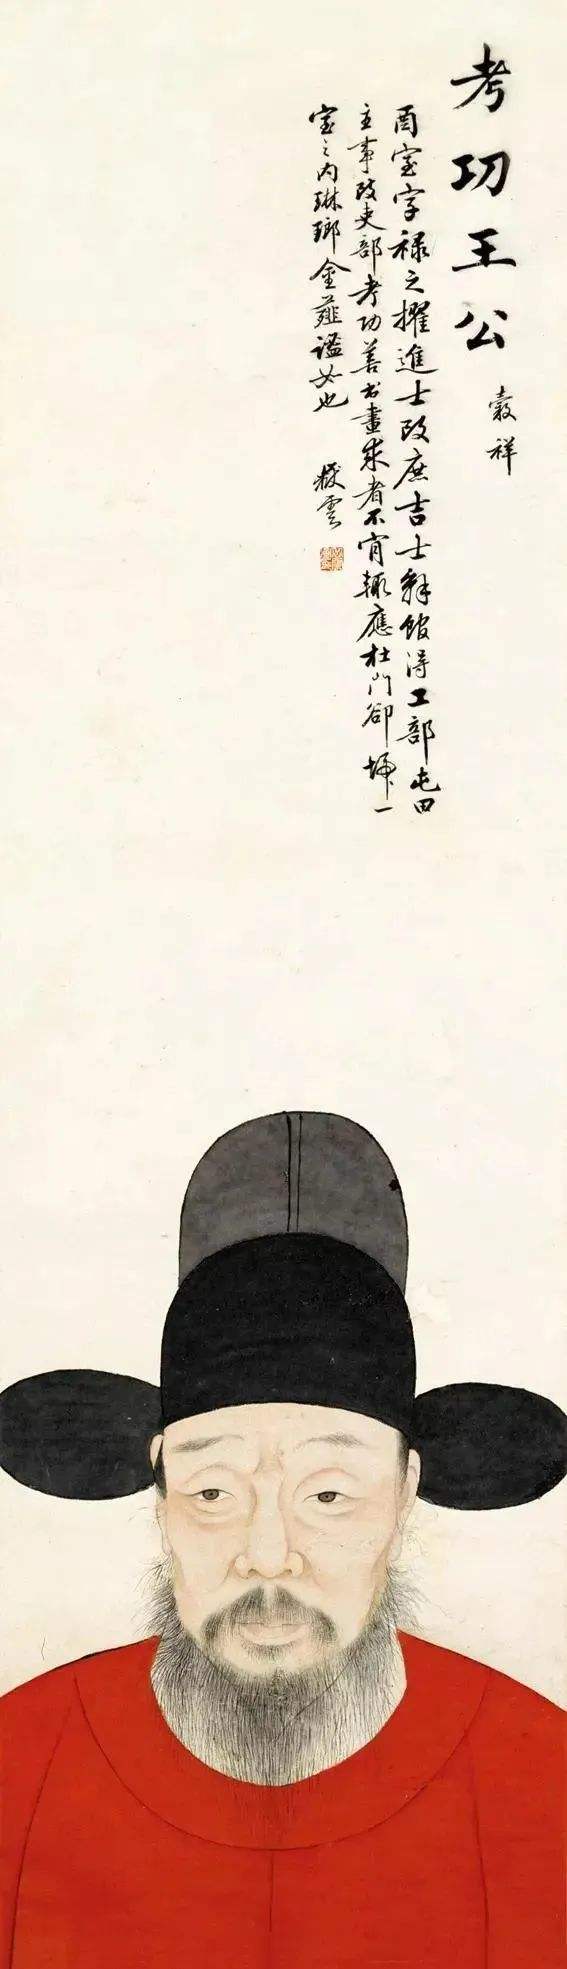 考功王公
榖祥
酉室字禄之擢進士改庶吉士觧館得工部屯田
主事改吏部考功善书畫求者不肯輒應杜门卻埽一
室之内琳瑯金薤謐如也
雲